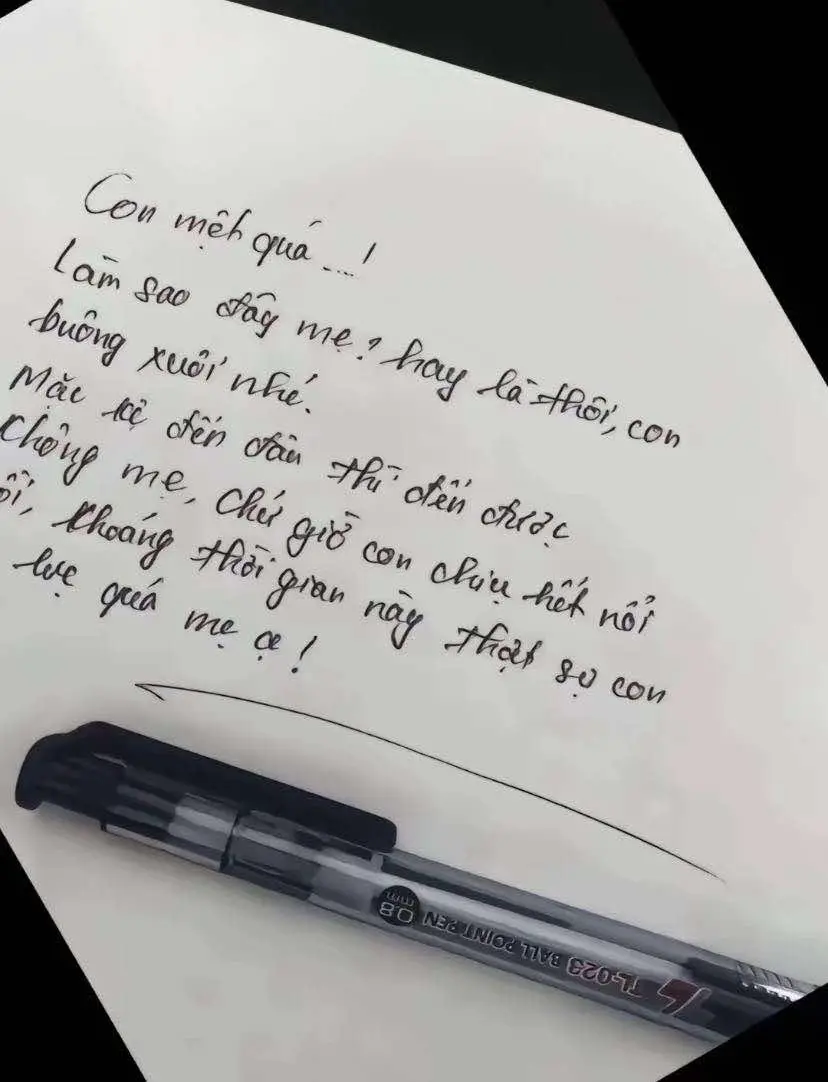 Con mệt quá ....!
Làm sao đây mẹ? hay là thôi, con
buông xuôi nhé.
Mặc kệ đến đâu thì đến được
không mẹ, chứ giờ con chịu hết nổi
rồi, khoảng thời gian này thật sự con
quá mẹ ạ!
TL-023 BALL POINT PEN 0.8 mm